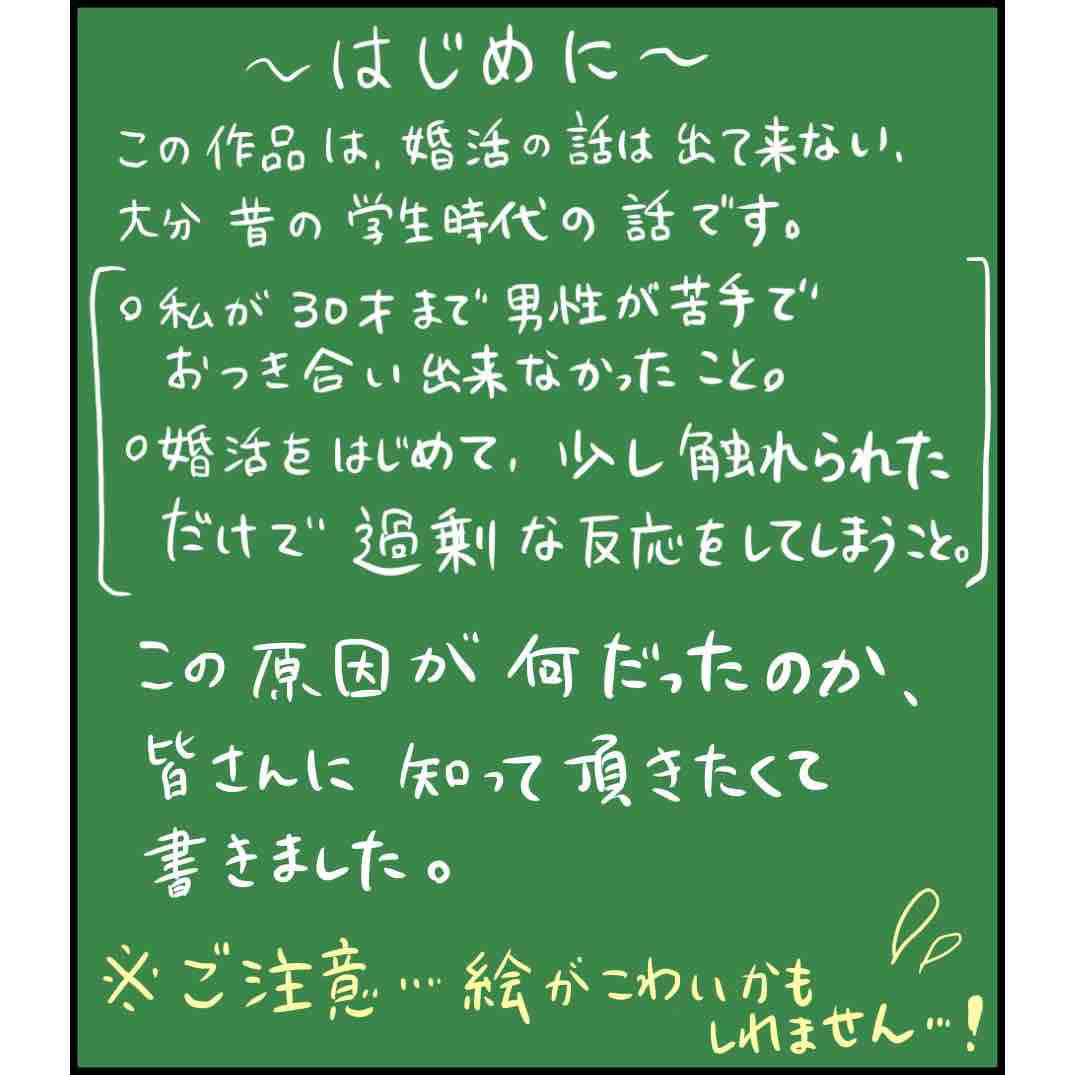 ～はじめに～
この作品は、婚活の話は出て来ない、
大分昔の学生時代の話です。
○私が30才まで男性が苦手で
おつき合い出来なかったこと。
○婚活をはじめて、少し触れられた
だけで過剰な反応をしてしまうこと。
この原因が何だったのか、
皆さんに知って頂きたくて
書きました。
※ご注意…絵がこわいかも
しれません…!